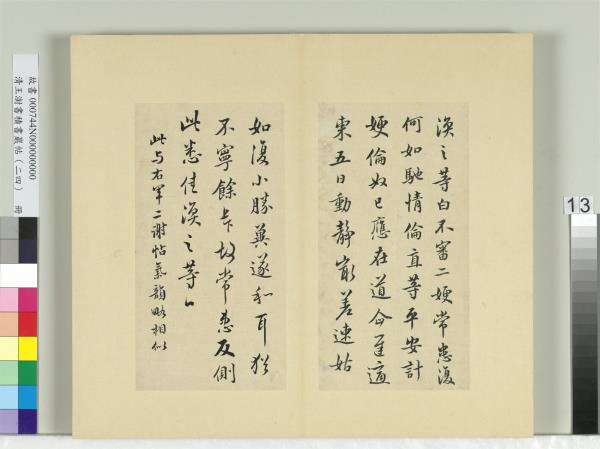 渙之等白不審二嫂常患復
何如馳情倫直等平安計
嫂倫奴已應在道
東五日動靜寂差速姑
如復小勝冀遂和耳猶
不寧餘上下故常患反側
此悉佳渙之等白
此與右軍二謝帖氣韻略相似
故書 000744N000000000
清王澍書積書巖帖（二四） 冊
13